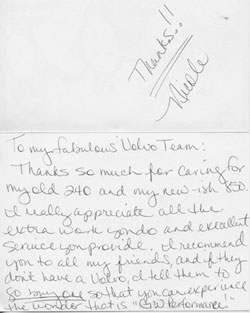 Thanks..!!
Nicole
To my fabulous Volvo Team:
Thanks so much for caring for
my old 240 and my new-ish 850.
I really appreciate all the
extra work you do and excellent
service you provide. I recommend
you to all my friends, and if they
don't have a Volvo, I tell them to
go buy one so that you can experience
the wonder that is "GW Performance!"